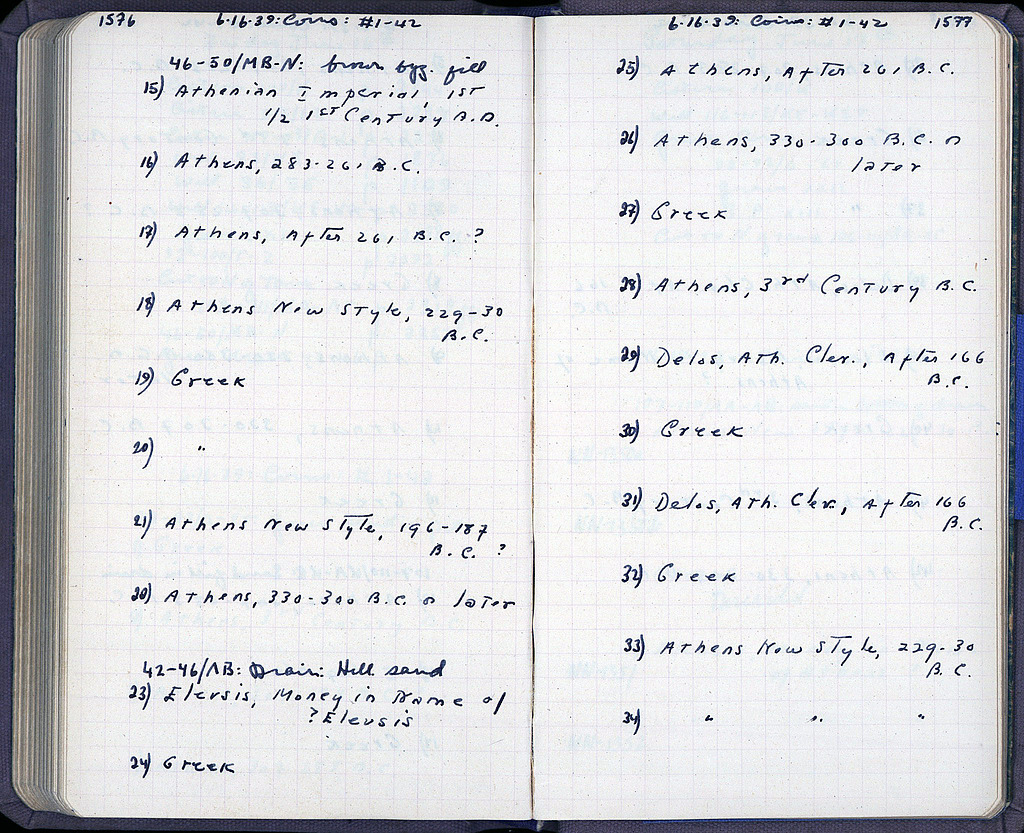 1576 6·16·39: Coins: #1-42
46-50/MB-N: brown byz. fill
15) Athenian Imperial, 1st
1/2 1st Century A.D.
16) Athens, 283-261 B.C.
17) Athens, After 261 B.C. ?
18) Athens New Style, 229-30
B.C.
19) Greek
20) "
21) Athens New Style, 196-187
B.C. ?
20) Athens, 330-300 B.C. or later
42-46/ΛB: Drain: Hill sand
23) Eleusis, Money in Name of
? Eleusis
24) Greek
6·16·39: Coins: #1-42 1577
25) Athens, After 261 B.C.
26) Athens, 330-300 B.C. or
later
27) Greek
28) Athens, 3rd Century B.C.
29) Delos, Ath. Cler., After 166
B.C.
30) Greek
31) Delos, Ath. Cler., After 166
B.C.
32) Greek
33) Athens New Style, 229-30
B.C.
34) " " "